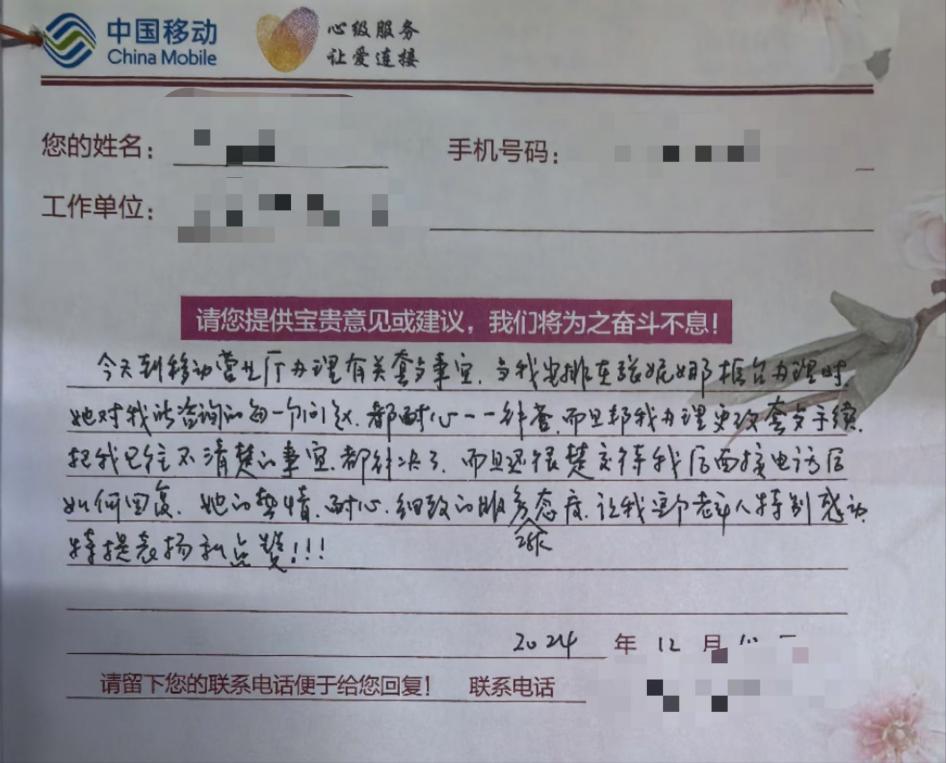 中国移动
China Mobile
心级服务
让爱连接
您的姓名：
手机号码：
工作单位：
请您提供宝贵意见或建议，我们将为之奋斗不息！
今天到移动营业厅办理有关套餐事宜，当我安排在张妮娜柜台办理时，
她对我所咨询的每一个问题，都耐心一一解答，而且帮我办理更改套餐手续，
把我已往不清楚的事宜，都解决了，而且还很楚交待我后面接电话后
如何回复，她的热情、耐心、细致的服务态度，让我这个老年人特别感动
特提表扬和点赞！！！
2024 年 12 月
请留下您的联系电话便于给您回复！ 联系电话